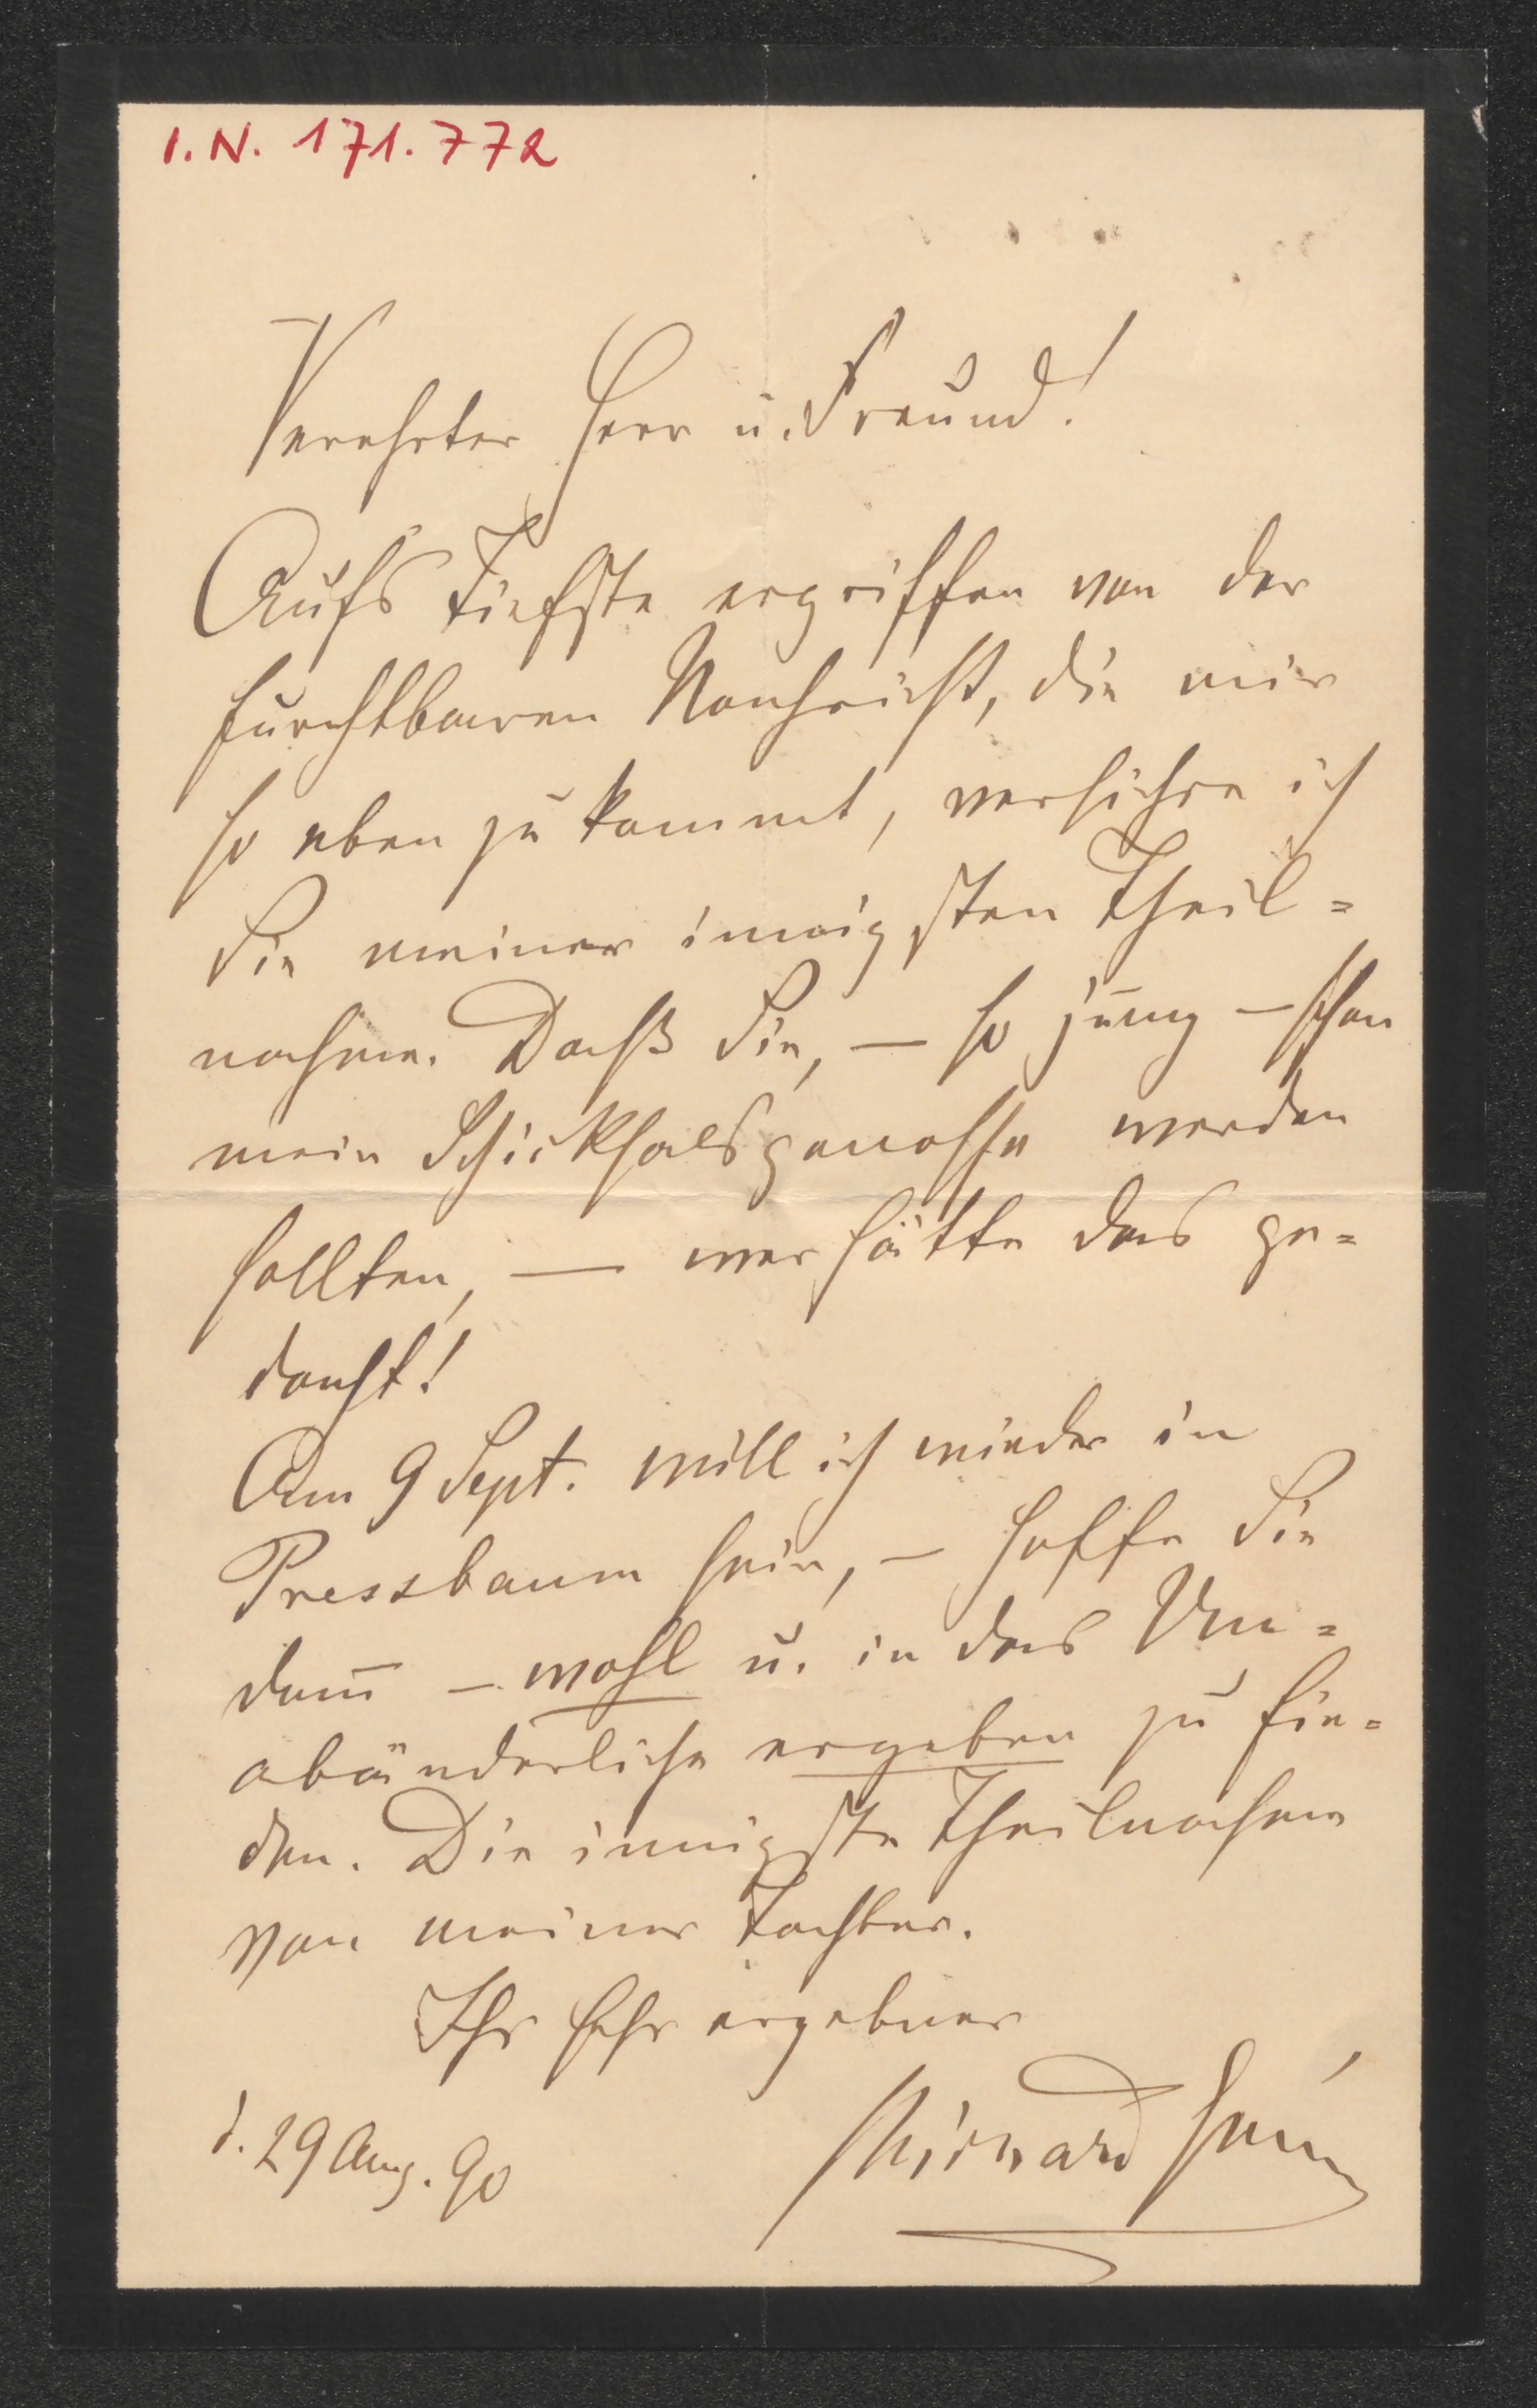 I.N. 171.772
Verehrter Herr u. Freund!
Aufs Tiefste ergriffen von der
furchtbaren Nachricht, die mir
so eben zu kommt, versichre ich
Sie meiner innigsten Theil=
nahme. Daß Sie, — so jung — schon
mein Schicksalsgenosse werden
sollten, — wer hätte das ge=
dacht!
Am 9 Sept. will ich wieder in
Pressbaum sein, — hoffe Sie
dann — wohl u. in das Un=
abänderliche ergeben zu fin=
den. Die innigste Theilnahme
von meiner Tochter.
Ihr sehr ergebner
d. 29 Aug. 90